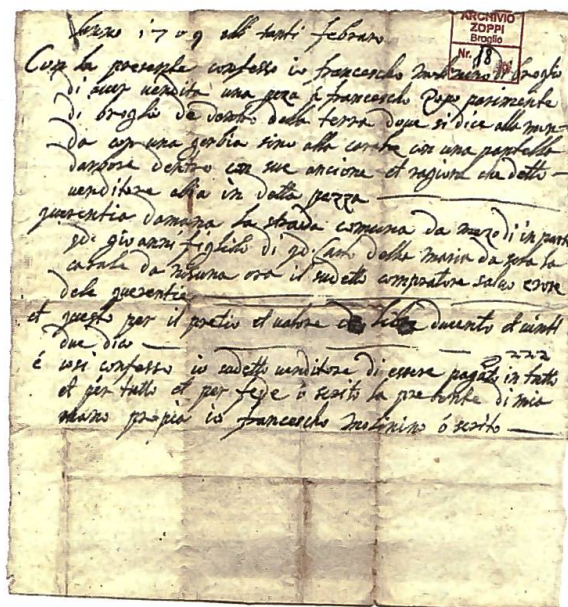 Lanno 1709 alli tanti febraro
ARCHIVIO
ZOPPI
Broglio
Nr. 18
Con la presente confesso io francescho molinino di broglio
di aver vendita una peza é francescho Zopo parimente
di broglio de dentro della terra dove si dice alla
da con una gerbia sino alla con una
darbore dentro con sue ancione et ragioni che detto
venditore abia in detta pezza
querentia damana la strada comuna da mezo di in parte
qd. giovanni figliolo di qd. della maria da sera la
casale da nisuna ora il sudetto compratore salvo erore
dele querentie
et questo per il pretio et valore de libre ducento et vinti
due dico 222
é cosi confesso io sudetto venditore di essere pagato in tutto
et per tutto et per fede ó scrito la presente di mia
mano propia io francescho molinino ó scrito